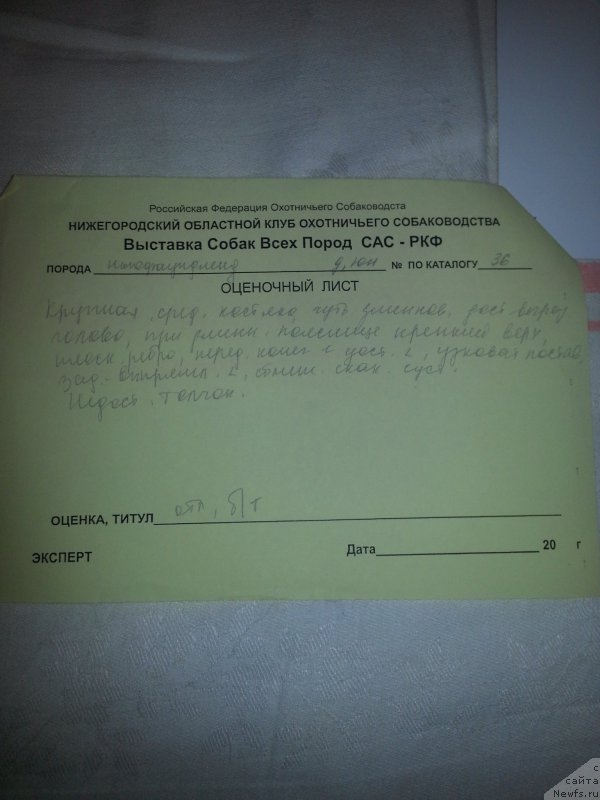 Российская Федерация Охотничьего Собаководста
НИЖЕГОРОДСКИЙ ОБЛАСТНОЙ КЛУБ ОХОТНИЧЬЕГО СОБАКОВОДСТВА
Выставка Собак Всех Пород САС - РКФ
ПОРОДА ньюфаундленд д, юн № ПО КАТАЛОГУ 36
ОЦЕНОЧНЫЙ ЛИСТ
Крупная, сред. костяка, чуть длиннов, дост. выраз
голова, при длинн. пояснице крепкий верх,
плоск. ребро, перед. конеч с дост. ∠, узковат постав,
зад. - выпрямл. ∠,  скак. суст.
Недост. Толчок.
ОЦЕНКА, ТИТУЛ отл, б/т
ЭКСПЕРТ
Дата 20 г
с
сайта
Newfs.ru